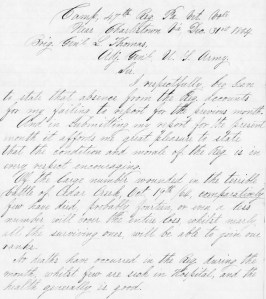 Camp, 47th Reg. Pa. Vet. Vols
Near Charlestown Va Dec. 31st 1864
Brig. Genl L. Thomas,
Adj. Genl. U. S. Army.
Sir
I respectfully, beg leave
to state that absence from the Reg. accounts
for my failure to report for the previous month.
And in submitting my report for the present
month it affords me great pleasure to state
that the condition and morale of the Reg. is in
every respect encouraging.
Of the large number wounded in the terrible
battle of Cedar Creek, Oct 19th 64, comparatively
few have died, probably fifteen or one or
number will cover the entire loss whilst nearly
all the surviving ones, will be able to join our
ranks.
No deaths have occurred in the Reg during the
month, whilst few are sick in Hospital, and the
health generally is good.